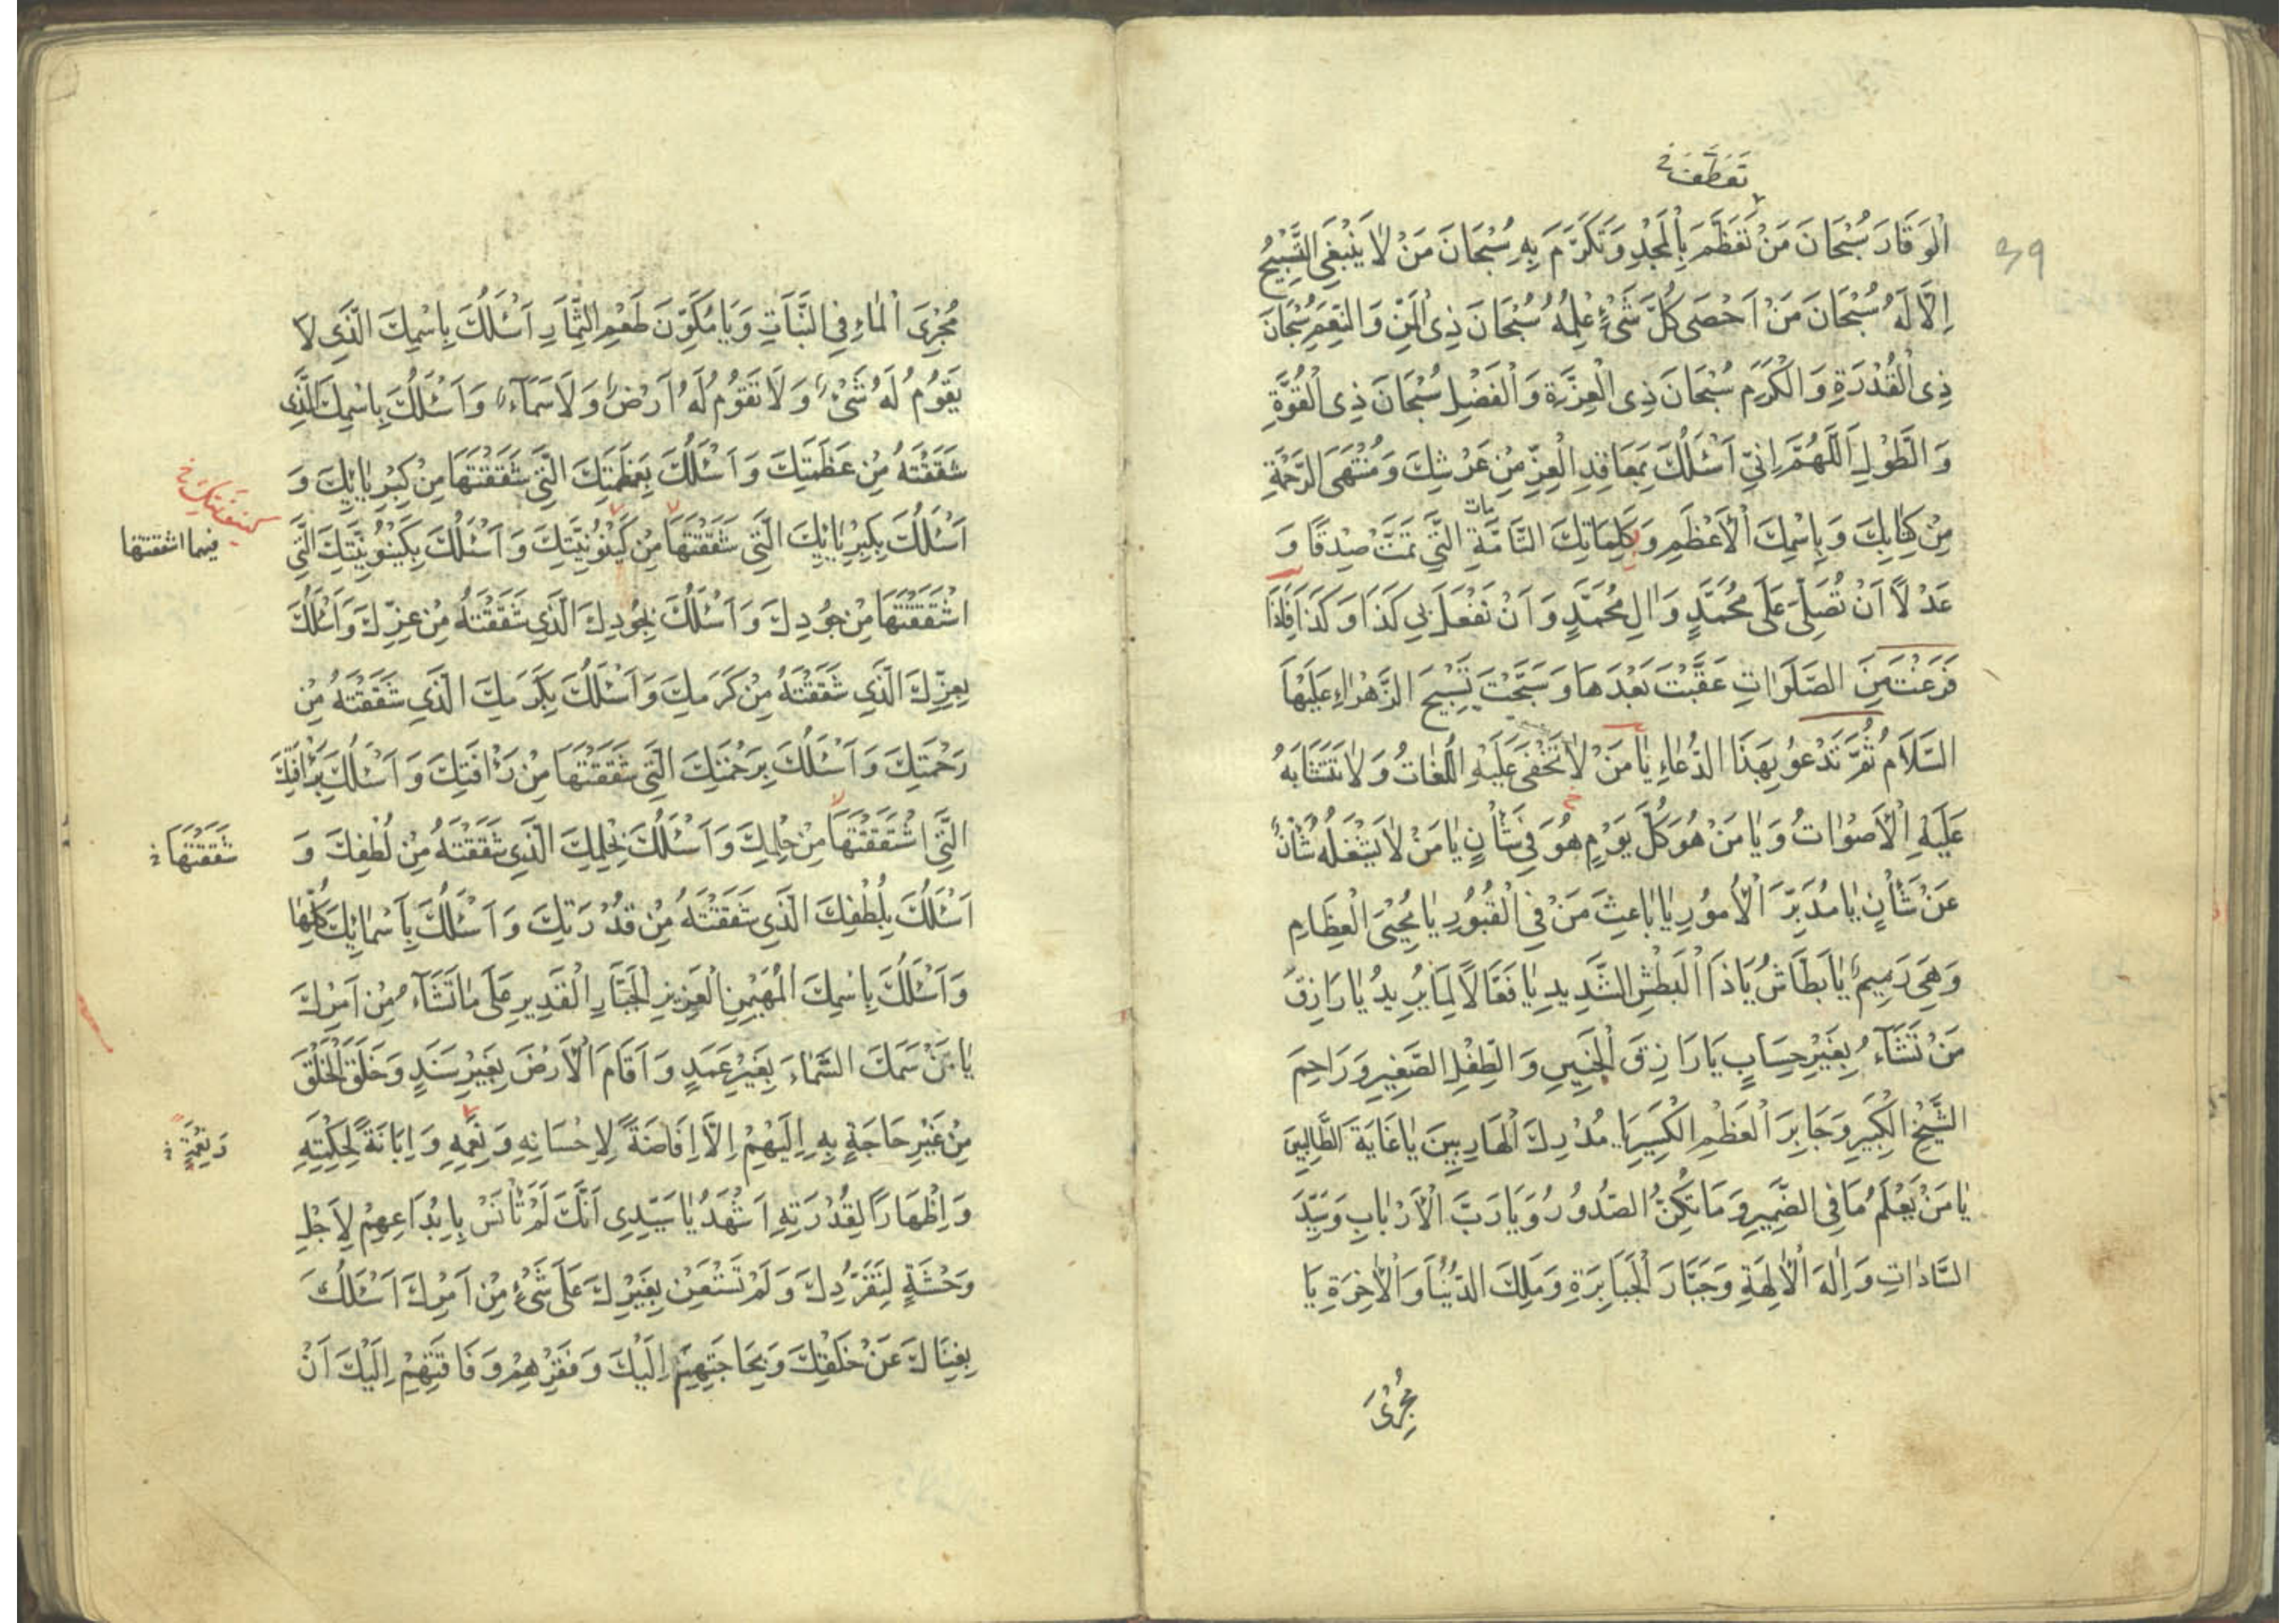 تَعَطَّفَ خ
39
الْوَقَارَ سُبْحَانَ مَنْ تَعَظَّمَ بِالْمَجْدِ وَتَكَرَّمَ بِهِ سُبْحَانَ مَنْ لَا يَنْبَغِي التَّسْبِيحُ
اِلَّا لَهُ سُبْحَانَ مَنْ اَحْصَى كُلَّ شَيْءٍ عِلْمُهُ سُبْحَانَ ذِي الْمَنِّ وَالنِّعَمِ سُبْحَانَ
ذِي الْقُدْرَةِ وَالْكَرَمِ سُبْحَانَ ذِي الْعِزَّةِ وَالْفَضْلِ سُبْحَانَ ذِي الْقُوَّةِ
وَالطَّوْلِ اَللّٰهُمَّ اِنّي اَسْئَلُكَ بِمَعَاقِدِ الْعِزِّ مِنْ عَرْشِكَ وَمُنْتَهَى الرَّحْمَةِ
مِنْ كِتَابِكَ وَبِاسْمِكَ الْاَعْظَمِ وَكَلِمَاتِكَ التَّامَّةِ الَّتِي تَمَّتْ صِدْقًا وَ
مات
عَدْلًا اَنْ تُصَلِّيَ عَلَى مُحَمَّدٍ وَالِ مُحَمَّدٍ وَاَنْ تَفْعَلَ بِي كَذَا وَكَذَا فَاِذَا
فَرَغْتَ مِنَ الصَّلَوٰاتِ عَقَّبْتَ بَعْدَهَا وَسَبَّحْتَ تَسْبِيحَ الزَّهْرَاءِ عَلَيْهَا
السَّلَامُ ثُمَّ تَدْعُو بِهَذَا الدُّعَاءِ يَا مَنْ لَا تَخْفَى عَلَيْهِ اللُّغَاتُ وَلَا تَتَشَابَهُ
عَلَيْهِ الْاَصْوَاتُ وَيَا مَنْ هُوَ كُلَّ يَوْمٍ هُوَ فِي شَأْنٍ يَا مَنْ لَا يَشْغَلُهُ شَأْنٌ
عَنْ شَأْنٍ يَا مُدَبِّرَ الْاُمُورِ يَا بَاعِثَ مَنْ فِي الْقُبُورِ يَا مُحْيِيَ الْعِظَامِ
وَهِيَ رَمِيمٌ يَا بَطَّاشُ يَا ذَا الْبَطْشِ الشَّدِيدِ يَا فَعَّالًا لِمَا يُرِيدُ يَا رَازِقَ
مَنْ تَشَآءُ بِغَيْرِ حِسَابٍ يَا رَازِقَ الْجَنِينِ وَالطِّفْلِ الصَّغِيرِ وَرَاحِمَ
الشَّيْخِ الْكَبِيرِ وَجَابِرَ الْعَظْمِ الْكَسِيرِ يَا مُدْرِكَ الْهَارِبِينَ يَا غَايَةَ الطَّالِبِينَ
يَا مَنْ يَعْلَمُ مَا فِي الضَّمِيرِ وَمَا تُكِنُّ الصُّدُورُ وَيَا رَبَّ الْاَرْبَابِ وَسَيِّدَ
السَّادَاتِ وَاِلٰهَ الْاٰلِهَةِ وَجَبَّارَ الْجَبَابِرَةِ وَمَلِكَ الدُّنْيَا وَالْاٰخِرَةِ يَا
مُجْرِيَ
مُجْرِيَ الْمَاءِ فِي النَّبَاتِ وَيَا مُكَوِّنَ طَعْمِ الثِّمَارِ اَسْئَلُكَ بِاسْمِكَ الَّذِي لَا
يَقُومُ لَهُ شَيْءٌ وَلَا تَقُومُ لَهُ اَرْضٌ وَلَا سَمَآءٌ وَاَسْئَلُكَ بِاسْمِكَ الَّذِي
شَقَقْتَهُ مِنْ عَظَمَتِكَ وَاَسْئَلُكَ بِعَظَمَتِكَ الَّتِي شَقَقْتَهَا مِنْ كِبْرِيَائِكَ وَ
اَسْئَلُكَ بِكِبْرِيَائِكَ الَّتِي شَقَقْتَهَا مِنْ كَيْنُونِيَّتِكَ وَاَسْئَلُكَ بِكَيْنُونِيَّتِكَ الَّتِي
كينونتك خ
فيهما اشتققتها
اشْتَقَقْتَهَا مِنْ جُودِكَ وَاَسْئَلُكَ بِجُودِكَ الَّذِي شَقَقْتَهُ مِنْ عِزِّكَ وَاَسْئَلُكَ
بِعِزِّكَ الَّذِي شَقَقْتَهُ مِنْ كَرَمِكَ وَاَسْئَلُكَ بِكَرَمِكَ الَّذِي شَقَقْتَهُ مِنْ
رَحْمَتِكَ وَاَسْئَلُكَ بِرَحْمَتِكَ الَّتِي شَقَقْتَهَا مِنْ رَأْفَتِكَ وَاَسْئَلُكَ بِرَأْفَتِكَ
الَّتِي اشْتَقَقْتَهَا مِنْ حِلْمِكَ وَاَسْئَلُكَ بِحِلْمِكَ الَّذِي شَقَقْتَهُ مِنْ لُطْفِكَ وَ
شَقَقْتَهَا خ
اَسْئَلُكَ بِلُطْفِكَ الَّذِي شَقَقْتَهُ مِنْ قُدْرَتِكَ وَاَسْئَلُكَ بِاَسْمَائِكَ كُلِّهَا
وَاَسْئَلُكَ بِاسْمِكَ الْمُهَيْمِنِ الْعَزِيزِ الْجَبَّارِ الْقَدِيرِ عَلَى مَا تَشَآءُ مِنْ اَمْرِكَ
يَا مَنْ سَمَكَ السَّمَاءَ بِغَيْرِ عَمَدٍ وَاَقَامَ الْاَرْضَ بِغَيْرِ سَنَدٍ وَخَلَقَ الْخَلْقَ
مِنْ غَيْرِ حَاجَةٍ بِهِ اِلَيْهِمْ اِلَّا اِفَاضَةً لِاِحْسَانِهِ وَنِعَمِهِ وَاِبَانَةً لِحِكْمَتِهِ
وَنِعْمَتِهِ خ
وَاِظْهَارًا لِقُدْرَتِهِ اَشْهَدُ يَا سَيِّدِي اَنَّكَ لَمْ تَأْنَسْ بِاِبْدَاعِهِمْ لِاَجْلِ
وَحْشَةٍ لِتَفَرُّدِكَ وَلَمْ تَسْتَعِنْ بِغَيْرِكَ عَلَى شَيْءٍ مِنْ اَمْرِكَ اَسْئَلُكَ
بِغِنَاكَ عَنْ خَلْقِكَ وَبِحَاجَتِهِمْ اِلَيْكَ وَفَقْرِهِمْ وَفَاقَتِهِمْ اِلَيْكَ اَنْ